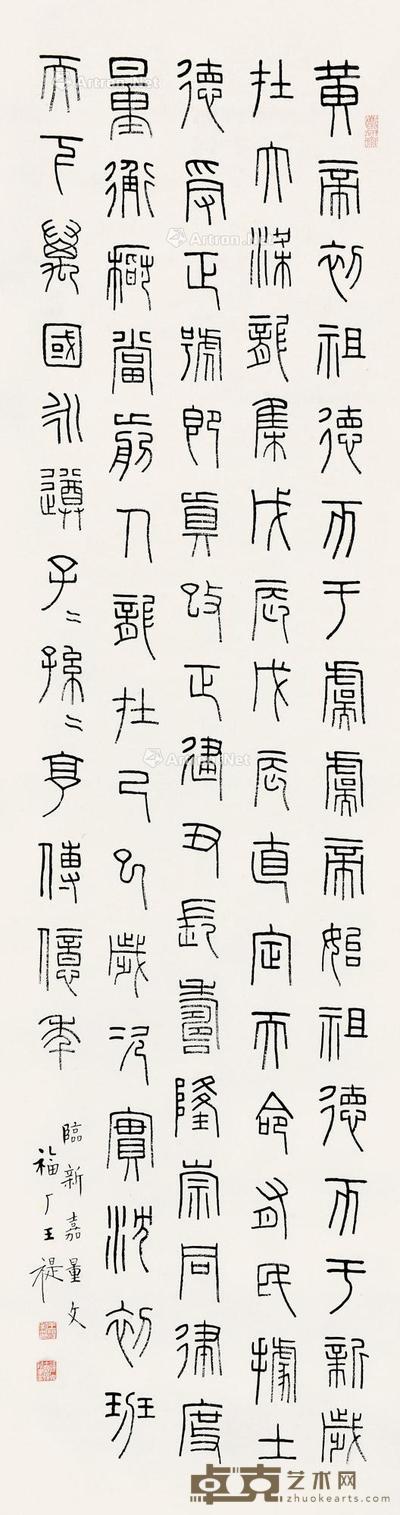 黃帝初祖德帀于虞虞帝始祖德帀于新歲
在大梁龍集戊辰戊辰直定天命有民據土
德受正號即真改正建丑長壽隆崇同律度
量衡稽當前人龍在己巳歲次實沈初班
天下萬國永遵子〻孫〻享傳億年
臨新嘉量文
福厂王禔
Artron.Net
Artron.Net
Artron.Net
Artron.Net
卓克艺术网
www.zhuokearts.com